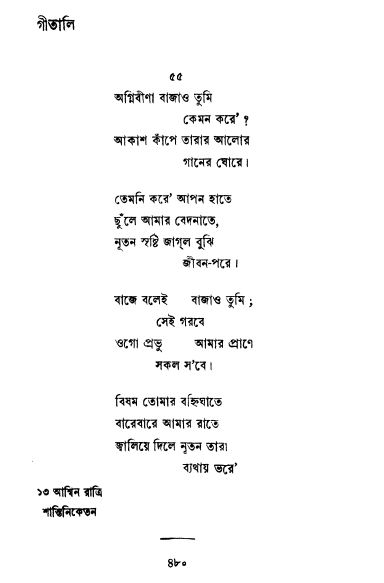 গীতালি
৫৫
অগ্নিবীণা বাজাও তুমি
কেমন করে’ ?
আকাশ কাঁপে তারার আলোর
গানের ঘোরে।
তেমনি করে’ আপন হাতে
ছুঁলে আমার বেদনাতে,
নূতন সৃষ্টি জাগ্‌ল বুঝি
জীবন-পরে।
বাজে বলেই বাজাও তুমি ;
সেই গরবে
ওগো প্রভু আমার প্রাণে
সকল স’বে।
বিষম তোমার বহ্নিঘাতে
বারেবারে আমার রাতে
জ্বালিয়ে দিলে নূতন তারা
ব্যথায় ভরে’
১৩ আশ্বিন রাত্রি
শান্তিনিকেতন
৪৮০